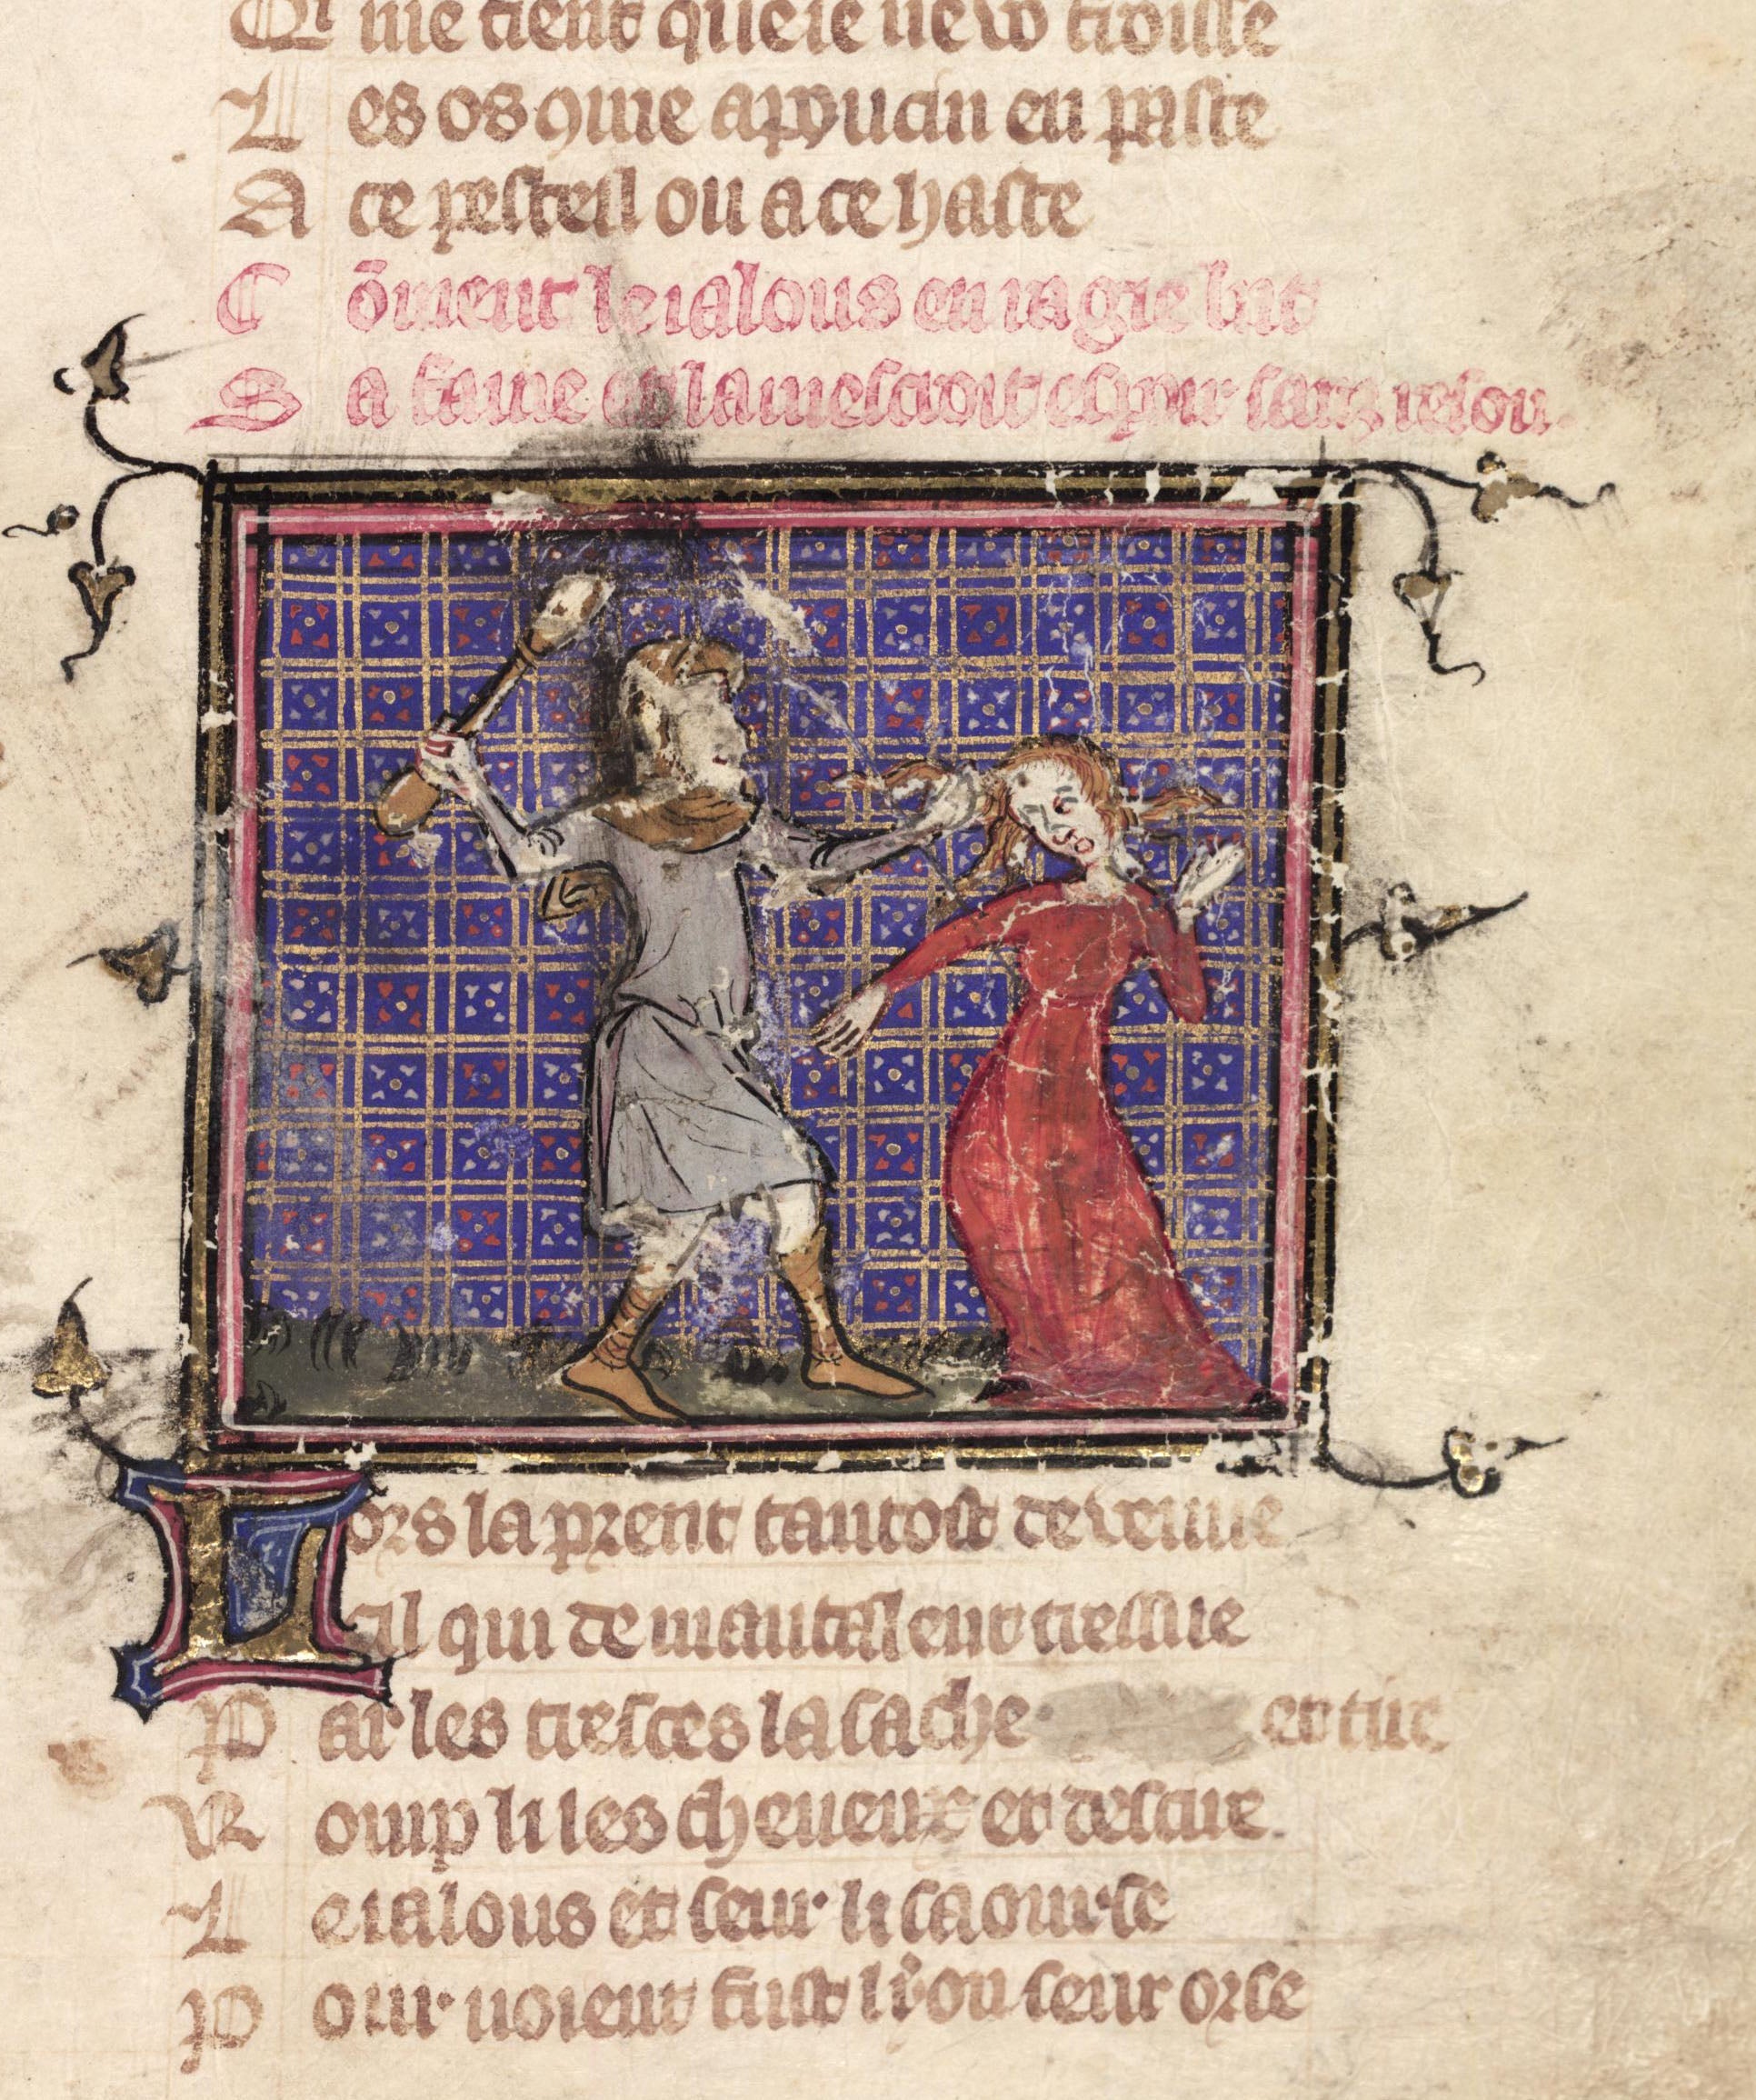 Qi me tient que ie ne vo troisse
Les os 9me a poucin en paste
A ce pesteil ou a ce haste
Cōment le ialous en ragie bat
Sa fame et la mescroit et par sanz reson.
Lors la prent tantost de venue
Cil qui de mautalent tressue
Par les tresces la sache et tire
Romp li les cheueux et descire.
Le ialous et seur li saourse
Pour noient fust lyon seur orse